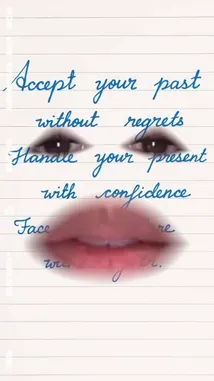 Accept your past
without regrets
Handle your present
with confidence
Face